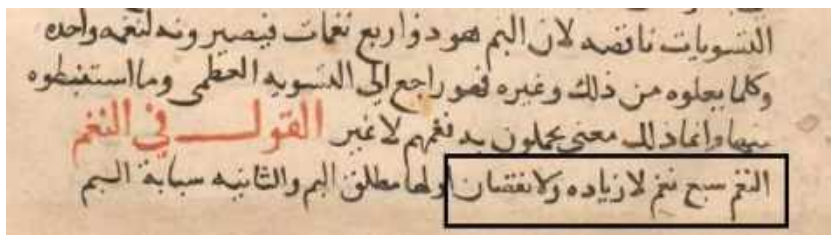 التسويات ناقصه لان البم هو ذو اربع نغمات فيصيرونه لنغمه واحده
وكلما يعلوه من ذلك وغيره فهو راجع الى التسويه العظمى وما استنبطوه
منها وانما ذلك معنى يحملون به نغمهم لا غير القول في النغم
النغم سبع نغم لا زياده ولا نقصان اولها مطلق البم والثانيه سبابة البم